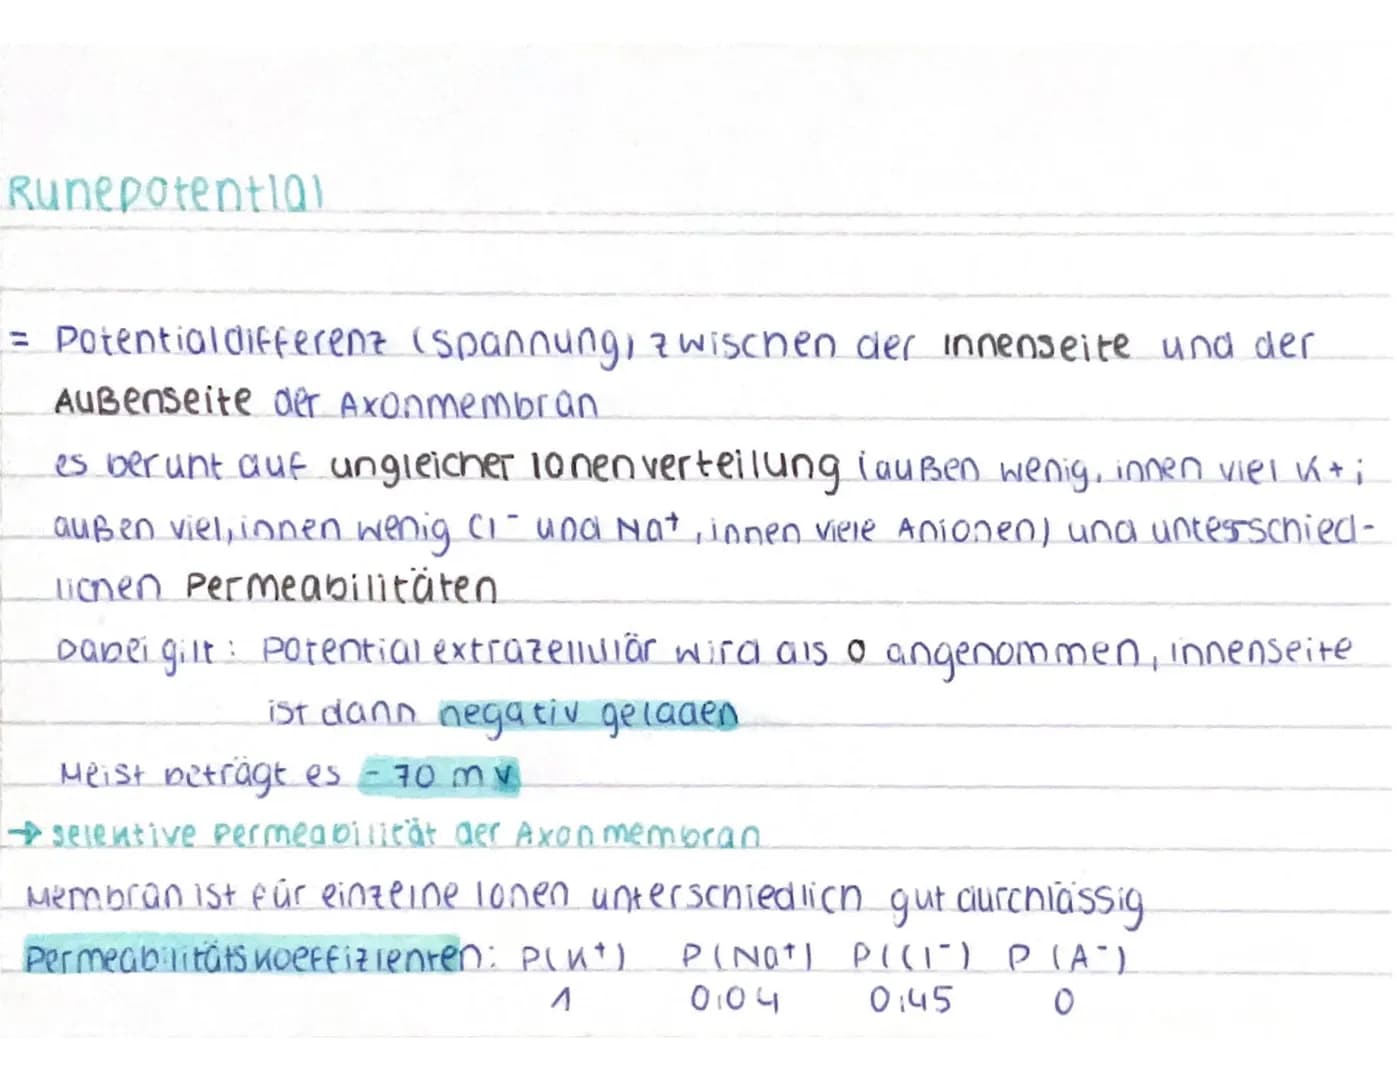 Ruhepotential
= Potentialdifferenz (Spannung) zwischen der Innenseite und der
Außenseite der Axonmembran
es beruht auf ungleicher Ionenverteilung (außen wenig, innen viel K+;
außen viel, innen wenig Cl⁻ und Na⁺, innen viele Anionen) und unterschied-
lichen Permeabilitäten
Dabei gilt: Potential extrazellulär wird als 0 angenommen, Innenseite
ist dann negativ geladen
Meist beträgt es - 70 mV
→ selektive Permeabilität der Axonmembran
Membran ist für einzelne Ionen unterschiedlich gut durchlässig
Permeabilitätskoeffizienten: P(K⁺) P(Na⁺) P(Cl⁻) P(A⁻)
1 0,04 0,45 0